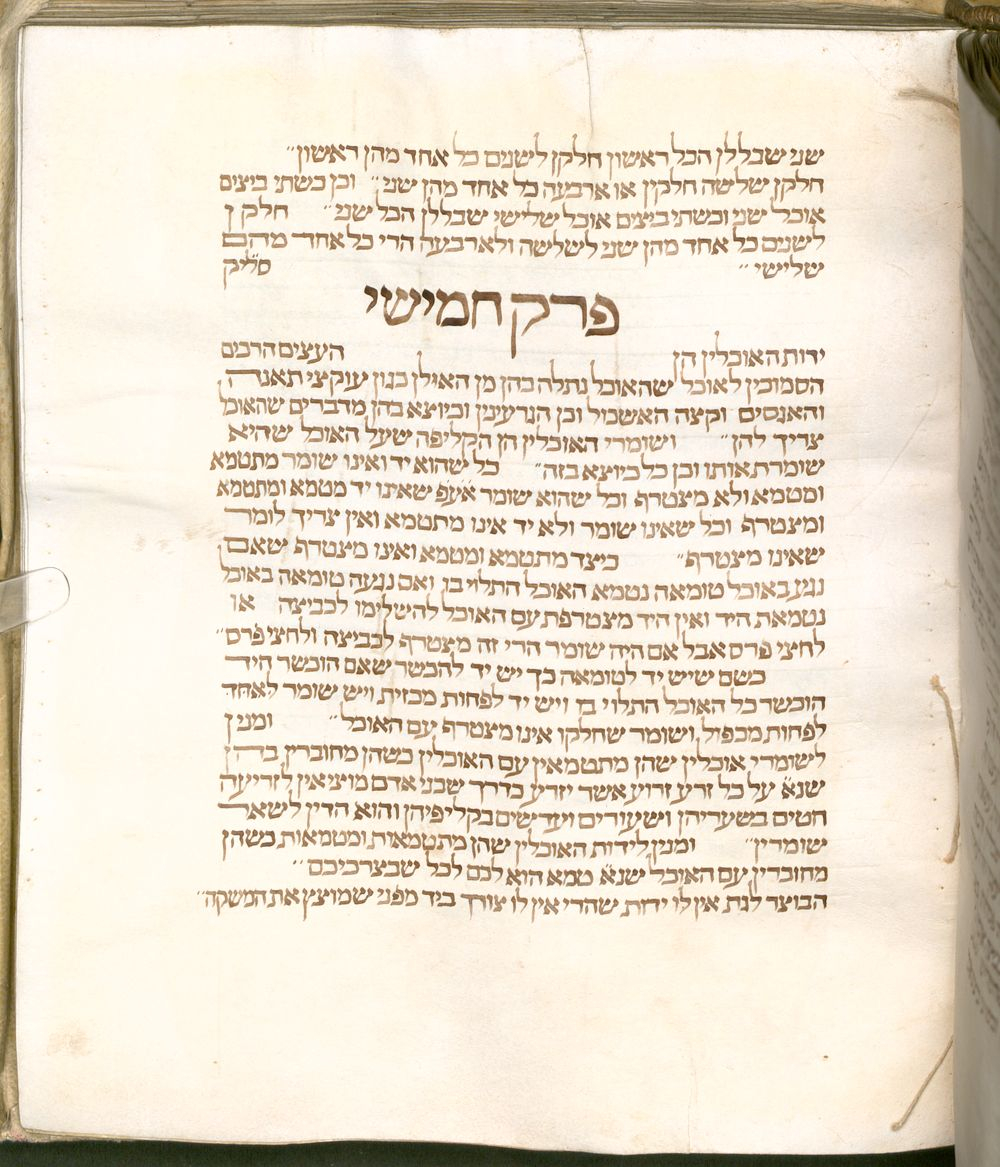 שני שבללן הכל ראשון חלקן לשנים כל אחד מהן ראשון״
חלקן שלישה חלקין או ארבעה כל אחד מהן שני״ וכן כשתי ביצים
אוכל שני וכשתי ביצים אוכל שלישי שבללן הכל שני״ חלקן
לשנים כל אחד מהן שני לשלישה ולארבעה הרי כל אחד מהם
שלישי״ סליק
פרק חמישי
ידות האוכלין הן העצים הרכים
הסמוכין לאוכל שהאוכל נתלה בהן מן האילן כגון עוקצי תאנה
והאגסים וקצה האשכול וכן הגרעינין וכיוצא בהן מדברים שהאוכל
צריך להן״ ושומרי האוכלין הן הקליפה שעל האוכל שהיא
שומרת אותו וכן כל כיוצא בזה״ כל שהוא יד ואינו שומר מתטמא
ומטמא ולא מצטרף וכל שהוא שומר אעפ שאינו יד מטמא ומתטמא
ומצטרף וכל שאינו שומר ולא יד אינו מתטמא ואין צריך לומר
שאינו מצטרף״ כיצד מתטמא ומטמא ואינו מצטרף שאם
נגע באוכל טומאה נטמא האוכל התלוי בו ואם נגעה טומאה באוכל
נטמאת היד ואין היד מצטרפת עם האוכל להשלימו לכביצה או
לחצי פרס אבל אם היה שומר הרי זה מצטרף לכביצה ולחצי פרס״
כשם שיש יד לטומאה כך יש יד להכשר שאם הוכשר היד
הוכשר כל האוכל התלוי בו ויש יד לפחות מכזית ויש שומר לאחד
לפחות מכפול ושומר שחלקו אינו מצטרף עם האוכל״ ומנין
לשומרי אוכלין שהן מתטמאין עם האוכלין כשהן מחוברין בהן
שנא על כל זרע זרוע אשר יזרע כדרך שבני אדם מוציאין לזריעה
חטים בשעריהן ושעורים ועדשים בקליפיהן והוא הדין לשאר
שומרין״ ומנין לידות האוכלין שהן מתטמאות ומטמאות כשהן
מחוברין עם האוכל שנא טמא הוא לכם לכל שבצרכיכם״
הבוצר לגת אין לו ידות שהרי אין לו צורך ביד מפני שמוצץ את המשקה״